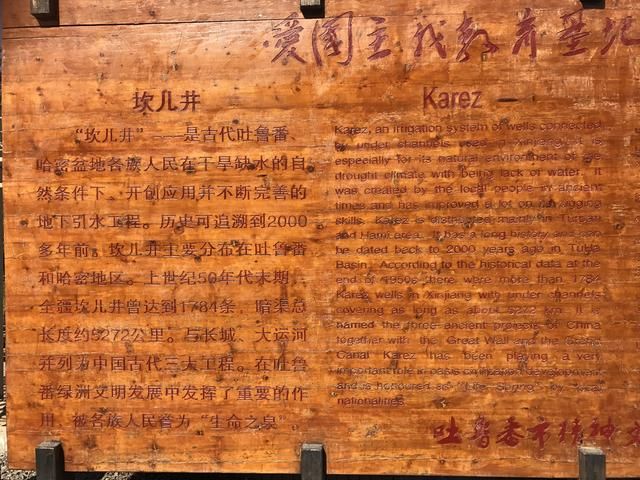 爱国主义教育基地
坎儿井
“坎儿井”——是古代吐鲁番、
哈密盆地各族人民在干旱缺水的自
然条件下、开创应用并不断完善的
地下引水工程。历史可追溯到2000
多年前。坎儿井主要分布在吐鲁番
和哈密地区。上世纪50年代末期，
全疆坎儿井曾达到1784条，暗渠总
长度约5272公里。与长城、大运河
并列为中国古代三大工程。在吐鲁
番绿洲文明发展中发挥了重要的作
用、被各族人民誉为“生命之泉”。
Karez
Karez, an irrigation system of wells connected
by under channels used in Xinjiang. It is
especially for its natural environment of the
drought climate with being lack of water. It
was created by the local people in ancient
times and has improved a lot on its digging
skills. Karez is distributed mainly in Turpan
and Hami area. It has a long history and can
be dated back to 2000 years ago in Tulufa
Basin. According to the historical data at the
end of 1950s there were more than 1784
Karez wells in Xinjiang with under channels
covering as long as about 5272 km. It is
named the three ancient projects of China
together with the Great Wall and the Grand
Canal Karez has been playing a very
important role in oasis civilization development
and is honoured as "Life Spring" by local
nationalities.
吐鲁番市精神